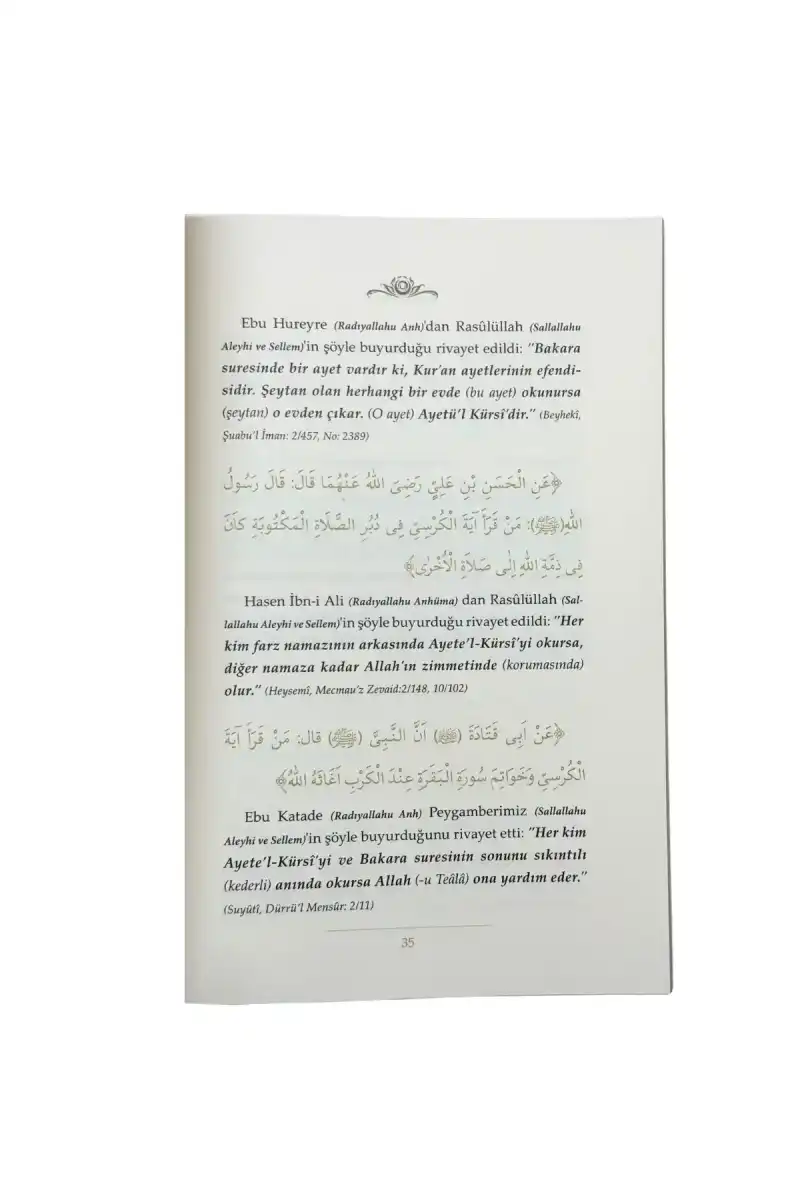 Ebu Hureyre (Radıyallahu Anh)'dan Rasûlüllah (Sallallahu
Aleyhi ve Sellem)'in şöyle buyurduğu rivayet edildi: "Bakara
suresinde bir ayet vardır ki, Kur'an ayetlerinin efendi-
sidir. Şeytan olan herhangi bir evde (bu ayet) okunursa
(şeytan) o evden çıkar. (O ayet) Ayetü'l Kürsî'dir." (Beyhekî,
Şuabu'l İman: 2/457, No: 2389)
﴿عَنِ الْحَسَنِ بْنِ عَلِيٍّ رَضِيَ اللهُ عَنْهُمَا قَالَ: قَالَ رَسُولُ
اللهِ(ﷺ): مَنْ قَرَأَ آيَةَ الْكُرْسِيِّ فِى دُبُرِ الصَّلَاةِ الْمَكْتُوبَةِ كَانَ
فِى ذِمَّةِ اللهِ إِلٰى صَلَاةِ الْأُخْرٰى﴾
Hasen İbn-i Ali (Radıyallahu Anhüma) dan Rasûlüllah (Sal-
lallahu Aleyhi ve Sellem)'in şöyle buyurduğu rivayet edildi: "Her
kim farz namazının arkasında Ayete'l-Kürsî'yi okursa,
diğer namaza kadar Allah'ın zimmetinde (korumasında)
olur." (Heysemî, Mecmau'z Zevaid:2/148, 10/102)
﴿عَنْ أَبِى قَتَادَةَ (ﷺ) اَنَّ النَّبِىَّ (ﷺ) قال: مَنْ قَرَأَ آيَةَ
الْكُرْسِيِّ وَخَوَاتِمَ سُورَةِ الْبَقَرَةِ عِنْدَ الْكَرْبِ اَغَاثَهُ اللهُ﴾
Ebu Katade (Radıyallahu Anh) Peygamberimiz (Sallallahu
Aleyhi ve Sellem)'in şöyle buyurduğunu rivayet etti: "Her kim
Ayete'l-Kürsî'yi ve Bakara suresinin sonunu sıkıntılı
(kederli) anında okursa Allah (-u Teâlâ) ona yardım eder."
(Suyûtî, Dürrü'l Mensûr: 2/11)
35